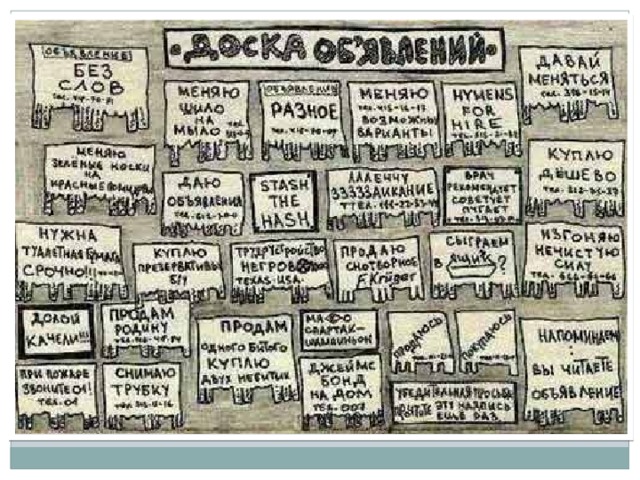 ДОСКА ОБЪЯВЛЕНИЙ
ОБЪЯВЛЕНИЕ
БЕЗ
СЛОВ
МЕНЯЮ
ШИЛО
НА
МЫЛО
ОБЪЯВЛЕНИЕ
РАЗНОЕ
МЕНЯЮ
ВОЗМОЖНЫ
ВАРИАНТЫ
HYMENS
FOR
HIRE
ДАВАЙ
МЕНЯТЬСЯ
МЕНЯЮ
ЗЕЛЕНЫЕ НОСКИ
НА
КРАСНЫЕ
ДАЮ
ОБЪЯВЛЕНИЯ
STASH
THE
HASH
ЛЛЛЕНЧУ
ЗЗЗЗЗАИКАНИЕ
ВРАЧ
РЕКОМЕНДУЕТ
СОВЕТУЕТ
ПУГАЕТ
КУПЛЮ
ДЁШЕВО
НУЖНА
ТУАЛЕТНАЯ БУМАГА
СРОЧНО!!!
КУПЛЮ
ПРЕЗЕРВАТИВЫ
Б/У
ТРУДУСТРОЙСТВО
НЕГРОВ
TEXAS. USA.
ПРОДАЮ
СНОТВОРНОЕ
F. Krüger
СЫГРАЕМ
В ЯЩИК?
ИЗГОНЯЮ
НЕЧИСТУЮ
СИЛУ
ДОЛОЙ
КАЧЕЛИ!!!
ПРОДАМ
РОДИНУ
ПРОДАМ
ОДНОГО БИТОГО
КУПЛЮ
ДВУХ НЕБИТЫХ
МАФЮ
СПАРТАК-
ШАМПИНЬОН
ПРОДАЮСЬ
ПОКУПАЮСЬ
НАПОМИНАЕМ:
ВЫ ЧИТАЕТЕ
ОБЪЯВЛЕНИЕ
ПРИ ПОЖАРЕ
ЗВОНИТЕ 01!
ТЕЛ. 01
СНИМАЮ
ТРУБКУ
ДЖЕЙМС
БОНД
НА ДОМ
ТЕЛ. 007
УБЕДИТЕЛЬНАЯ ПРОСЬБА
ПРЧТИТЕ ЭТУ НАДПИСЬ
ЕЩЕ РАЗ